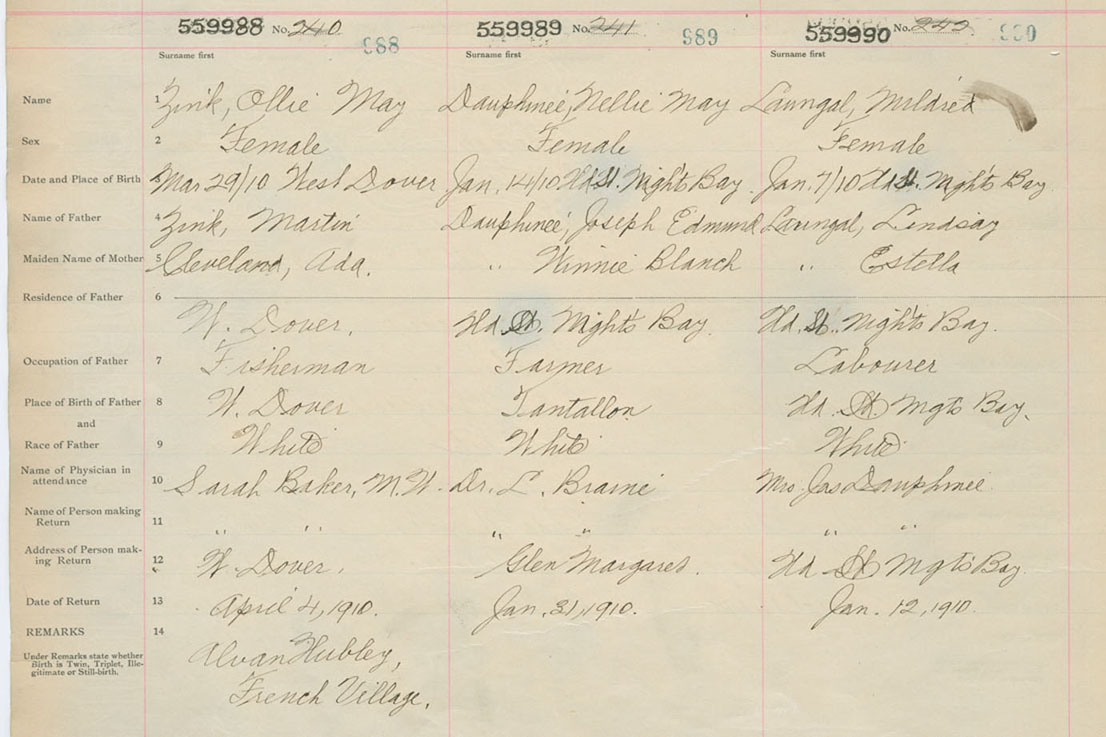 559988 No. 240 988 559989 No. 241 989 559990 No. 242 990
Surname first Surname first Surname first
Name 1 Zink, Ollie May Dauphinee, Nellie May Laungal, Mildred
Sex 2 Female Female Female
Date and Place of Birth 3 Mar 29/10 West Dover Jan. 14/10 Hd St. Mgts Bay Jan. 7/10 Hd St. Mgts Bay
Name of Father 4 Zink, Martin Dauphinee, Joseph Edmund Laungal, Lindsay
Maiden Name of Mother 5 Cleveland, Ada. " Winnie Blanch " Estella
Residence of Father 6
W. Dover. Hd St. Mgts Bay. Hd. St. Mgts Bay.
Occupation of Father 7 Fisherman Farmer Labourer
Place of Birth of Father 8 W. Dover Tantallon Hd. St Mgts Bay.
and
Race of Father 9 White White White
Name of Physician in
attendance 10 Sarah Baker, M.W. Dr. L. Braine Mrs. Jas Dauphinee.
Name of Person making
Return 11 " " " " " "
Address of Person mak-
ing Return 12 W. Dover. Glen Margaret. Hd St Mgts Bay.
Date of Return 13 April 4, 1910. Jan. 31, 1910. Jan. 12, 1910.
REMARKS 14
Under Remarks state whether
Birth is Twin, Triplet, Ille-
gitimate or Still-birth.
Alvan Hubley,
French Village.